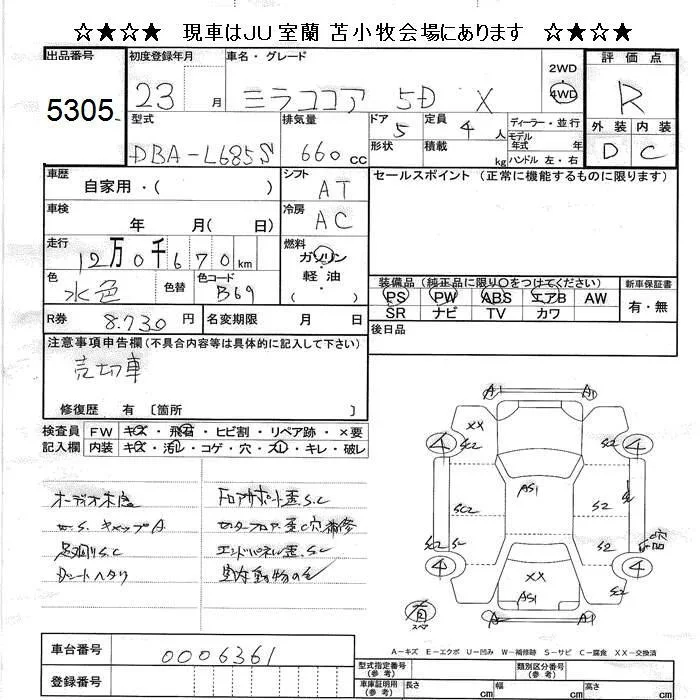 ☆★☆★ 現車はJU室蘭 苫小牧会場にあります ☆★☆★
出品番号 初度登録年月 車名・グレード 2WD 評価点
5305 23 月 ミラココア 5D X 4WD R
型式 排気量 ドア 定員 ディーラー・並行 外装 内装
DBA-L685S 660 cc 5 4 人 モデル 年式 年 D C
形状 積載 kg ハンドル 左・右
車歴 シフト セールスポイント (正常に機能するものに限ります)
自家用・( ) AT
車検 冷房
年 月( 日) AC
走行 燃料
12万0千670km ガソリン
軽・油
( ・ )
色 色替 色コード 装備品 (純正品に限り○をつけてください) 新車保証書
水色 B69 PS PW ABS エアB AW 有・無
SR ナビ TV カワ
R券 8.730 円 名変期限 月 日 後日品
注意事項申告欄(不具合内容等は具体的に記入して下さい)
売切車
修復歴 有 〔箇所 〕
検査員 FW キズ・飛石・ヒビ割・リペア跡・×要
記入欄 内装 キズ・汚レ・コゲ・穴・スレ・キレ・破レ
オーディオ木
フロアサポート歪S.C
キャップA
センターフロア歪C穴補修
足廻りS.C
エンドパネル歪.S.C
シートヘタリ
室内動物の毛
A1 A1
XX
4 S2 S2 4
AS1
SC2 S2
SC2 S S2
4 XX 4
AS1
有 スペア A A1
A−キズ E−エクボ U−凹み W−補修跡 S−サビ C−腐食 XX−交換済
車台番号 0006361
型式指定番号 (参考) 類別区分番号 (参考)
登録番号
車庫証明用 (参考) 長さ cm 幅 cm 高さ cm